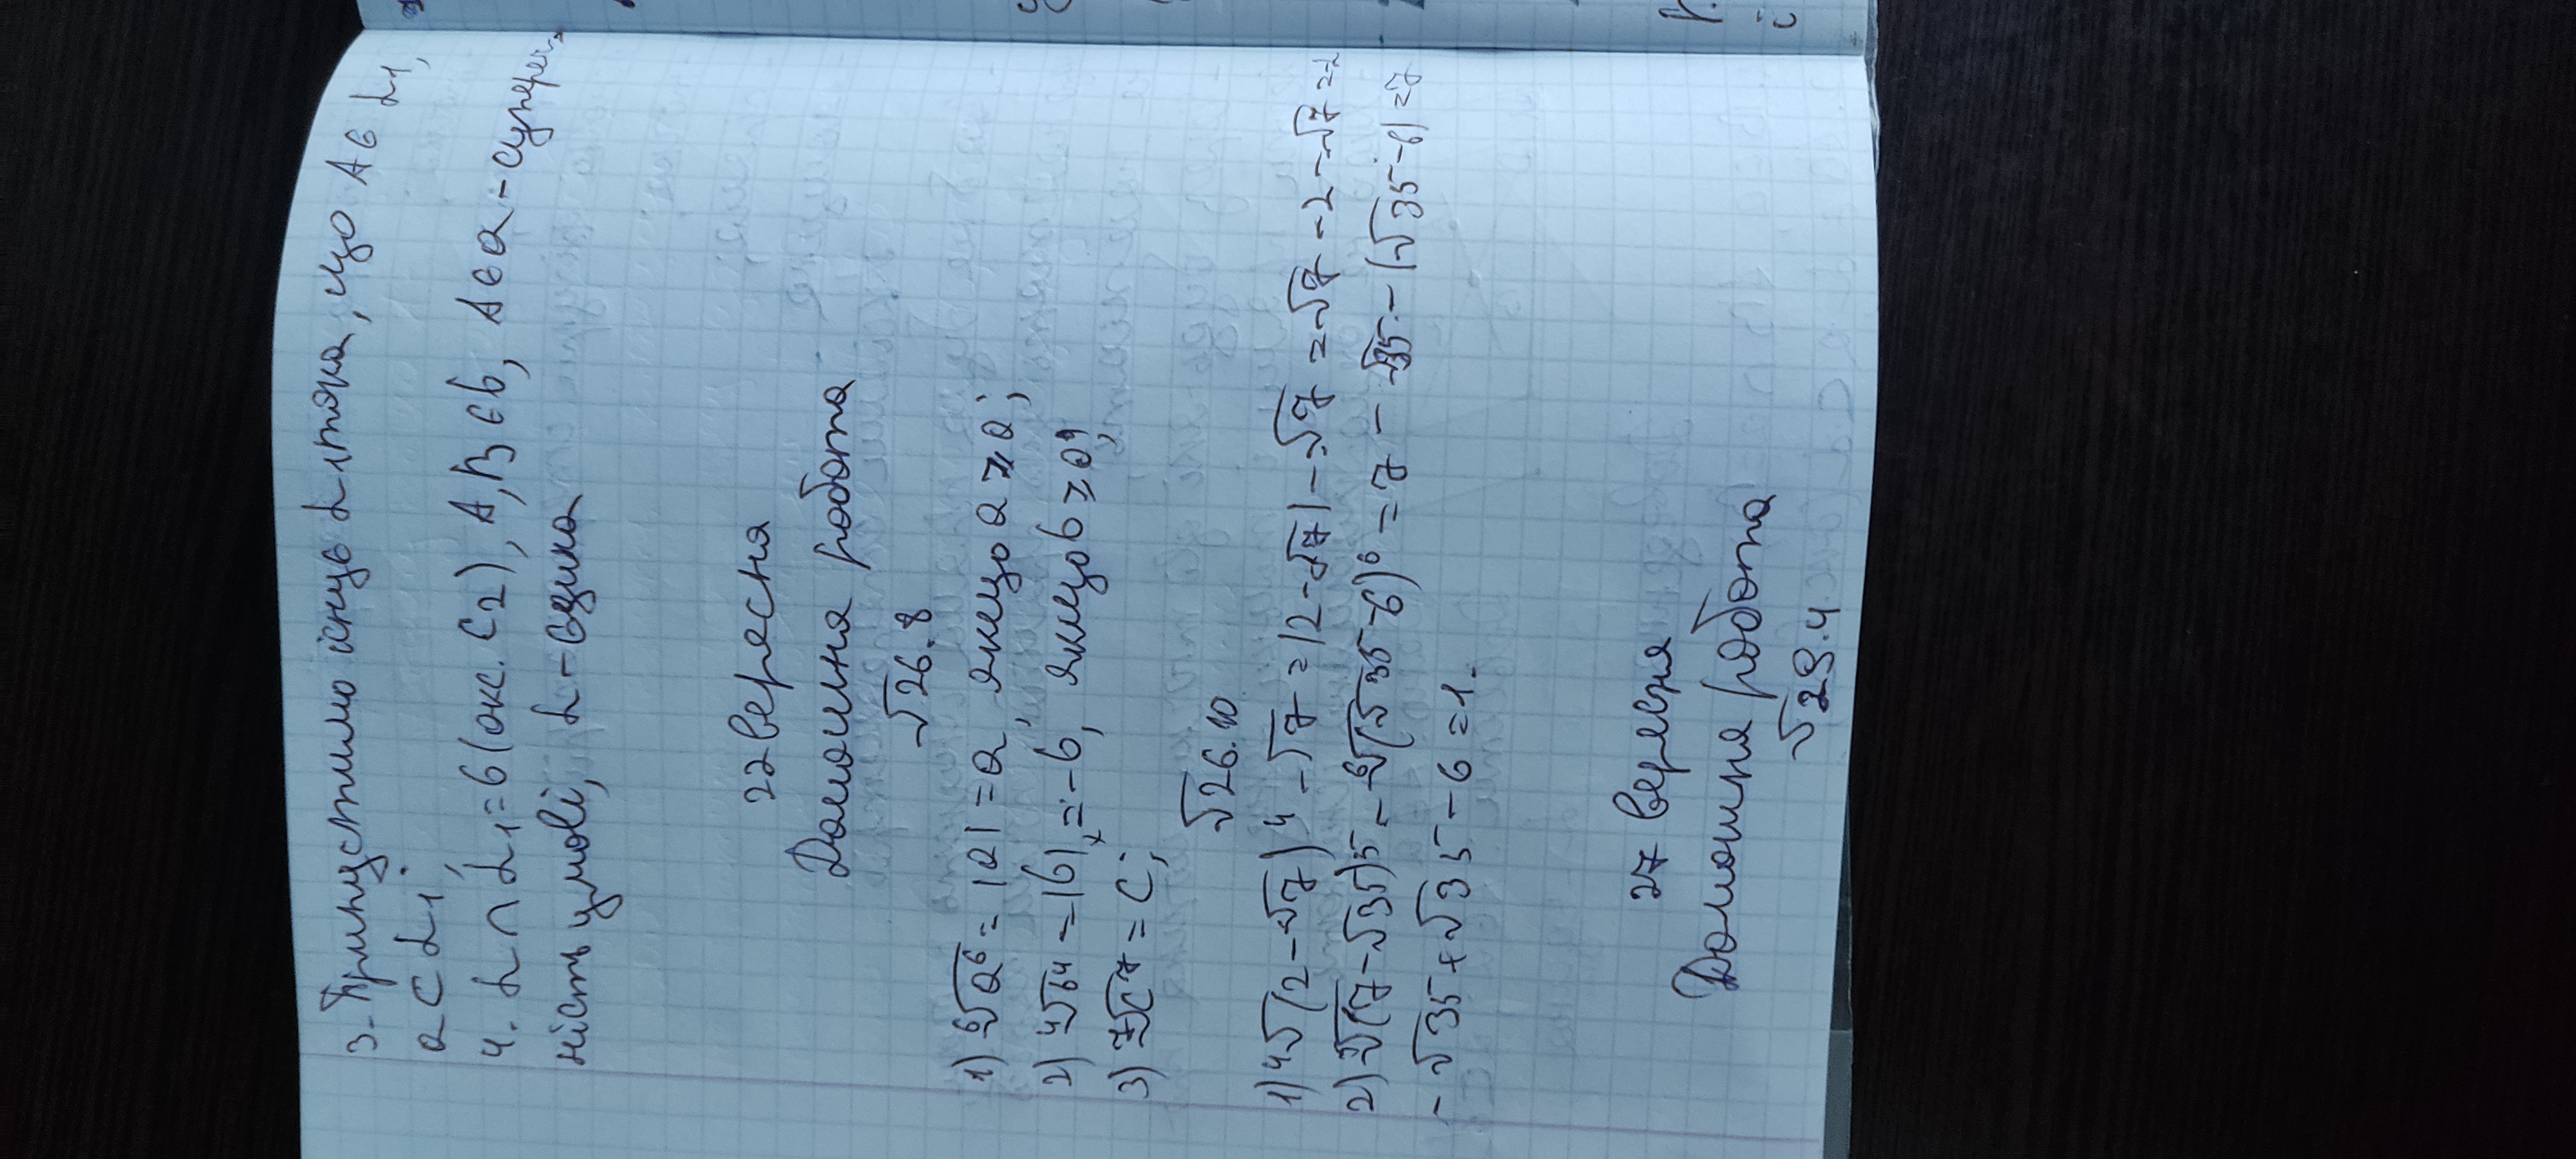 3. Припустимо існує α1 така, що A ∈ α1,
a ⊂ α1;
4. α ∩ α1 = b (акс. C2), A, B ∈ b, A ∈ a - супереч-
ність умові, α - єдина
22 вересня
Домашня робота
√26.8
1) ⁶√a⁶ = |a| = a, якщо a ≥ 0;
2) ⁴√b⁴ = |b| = -b, якщо b ≥ 0;
3) ⁷√c⁷ = c;
√26.10
1) ⁴√(2-√7)⁴ - √7 = |2-√7| - √7 = √7 - 2 - √7 = -2
2) ⁵√(7-√35)⁵ - ⁶√(√35-6)⁶ = 7 - √35 - |√35-6| = 7
- √35 + √35 - 6 = 1.
27 вересня
Домашня робота
√29.4